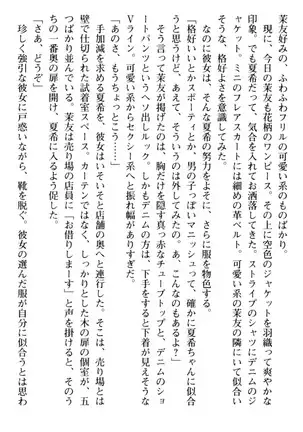 茉友好みの、ふわふわフリルの可愛い系のものばかり。
　現に、今日の茉友も花柄のワンピース。その上に空色のジャケットを羽織って爽やかな
印象。でも夏希だって、気合を入れてお洒落してきた。ストライプのシャツにデニムのジ
ャケット。ミニのフレアスカートには細めの革ベルト。可愛い系の茉友の隣にいて似合い
そうな、格好よさを意識してみた。
　なのに彼女は、そんな夏希の努力をよそに、さらに服を物色する。
「格好いいとかスポーティとか、男の子っぽいマニッシュって、確かに夏希ちゃんに似合
うと思うけど、あえて、そういうのは外してみたの。あ、こんなのもあるよ？」
　そう言って茉友が掲げたのは、胸だけを隠す真っ赤なチューブトップと、デニムのショ
ートパンツというヘソ出しルック。しかもデニムの方は、下手をすると下着が見えそうな
Ｖライン。可愛い系からセクシー系へと振れ幅がありすぎだ。
「あのさ、もうちょっとこう……」
　手加減を求める夏希を、彼女はそいそと店舗の奥へと連行した。そこは、売り場とは
壁で仕切られた試着室スペース。カーテンではなく、しっかりとした木の扉の個室が、五
つばかり並んでいる。茉友は売り場の店員に「お借りしまーす」と声を掛けると、そのう
ちの一番奥の扉を開け、夏希を入るよう促した。
「さあ、どうぞ」
　珍しく強引な彼女に戸惑いながら、靴を脱ぐ。彼女の選んだ服が自分に似合うとは思わ